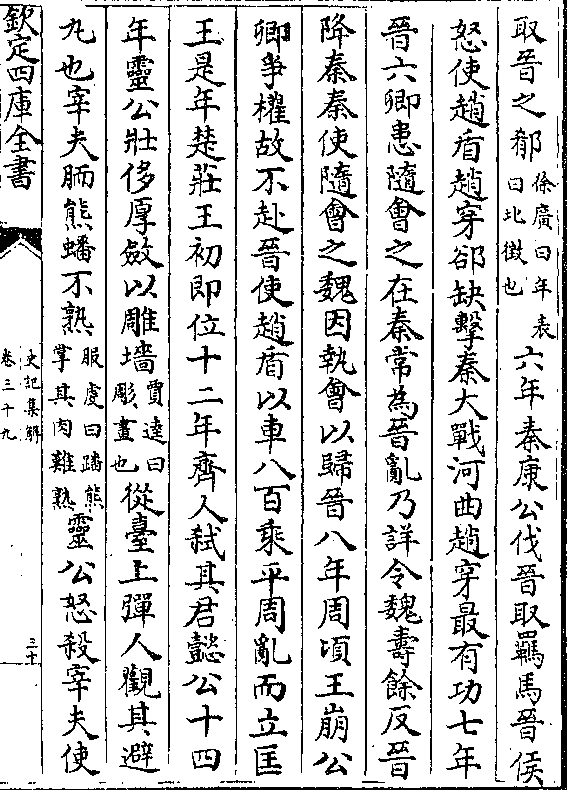 取晉之郩徐廣曰年表曰北徴也六年秦康公伐晉取羈馬晉侯
怒使趙盾趙穿郤缺擊秦大戰河曲趙穿最有功七年
晉六卿患隨會之在秦常為晉亂乃詳令魏壽餘反晉
降秦秦使隨會之魏因執會以歸晉八年周頃王崩公
卿爭權故不赴晉使趙盾以車八百乘平周亂而立匡
王是年楚莊王初即位十二年齊人弒其君懿公十四
年靈公壯侈厚斂以雕墻賈逵曰彫畫也從臺上彈人觀其避
丸也宰夫胹熊蟠不熟服虔曰蹯熊掌其肉難熟靈公怒殺宰夫使
欽定四庫全書
史記集解
卷三十九
三十